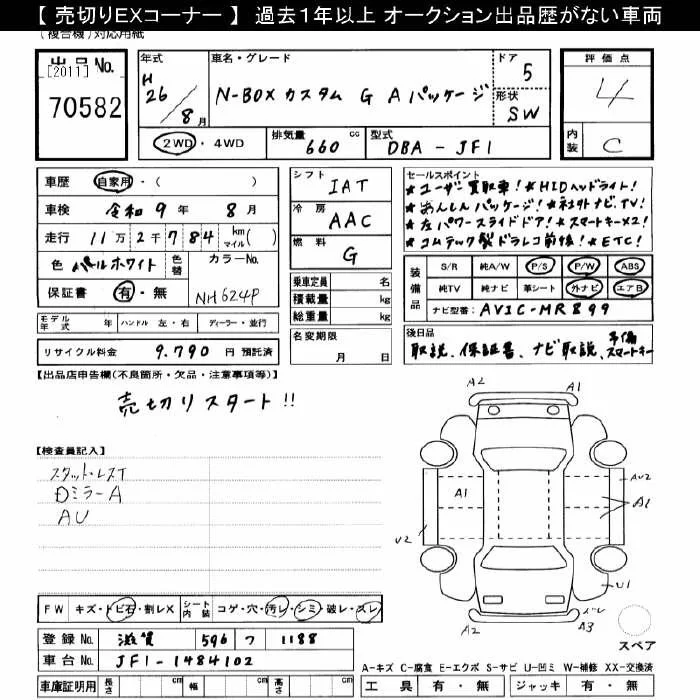 【 売切りEXコーナー 】 過去１年以上 オークション出品歴がない車両
(複合機)対応用紙
出品 No. [2011] 70582
年式 H 26/8月
車名・グレード N-BOX カスタム G Aパッケージ
ドア 5
形状 SW
2WD・4WD
排気量 660 cc
型式 DBA - JF1
評価点 4
内装 C
車歴 自家用・( )
車検 令和 9年 8月
走行 11万2千784 km マイル( )
色 パールホワイト 色替 カラーNo.
保証書 有・無 NH624P
モデル年式 年 ハンドル 左・右 ディーラー・並行
リサイクル料金 9.790 円 預託済
シフト IAT
冷房 AAC
燃料 G
乗車定員 名
積載量 kg
総重量 kg
名変期限 月 日
セールスポイント
★ユーザー買取車!★HIDヘッドライト!
★あんしんパッケージ!★社外ナビ.TV!
★左パワースライドドア!★スマートキー×2!
★コムテック製ドラレコ前後!★ETC!
装備品 S/R 純A/W P/S P/W ABS
純TV 純ナビ 革シート 外ナビ エアB
ナビ型番: AVIC-MR899
後日品
取説、保証書、ナビ取説、予備スマートキー
【出品店申告欄(不良箇所・欠品・注意事項等)】
売切りスタート!!
【検査員記入】
スタット・レスT
Dミラー A
AU
A2 A1
A1
AU2
A1
U2
U1
A2
A3
スペア
FW キズ・トビ石・割レX シート内装 コゲ・穴・汚レ・シミ・破レ・スレ
登録 No. 滋賀 596 フ 1188
車台 No. JF1-1484102
車庫証明用 長さ cm 幅 cm 高さ cm
A-キズ C-腐食 E-エクボ S-サビ U-凹ミ W-補修 XX-交換済
工具 有・無 ジャッキ 有・無